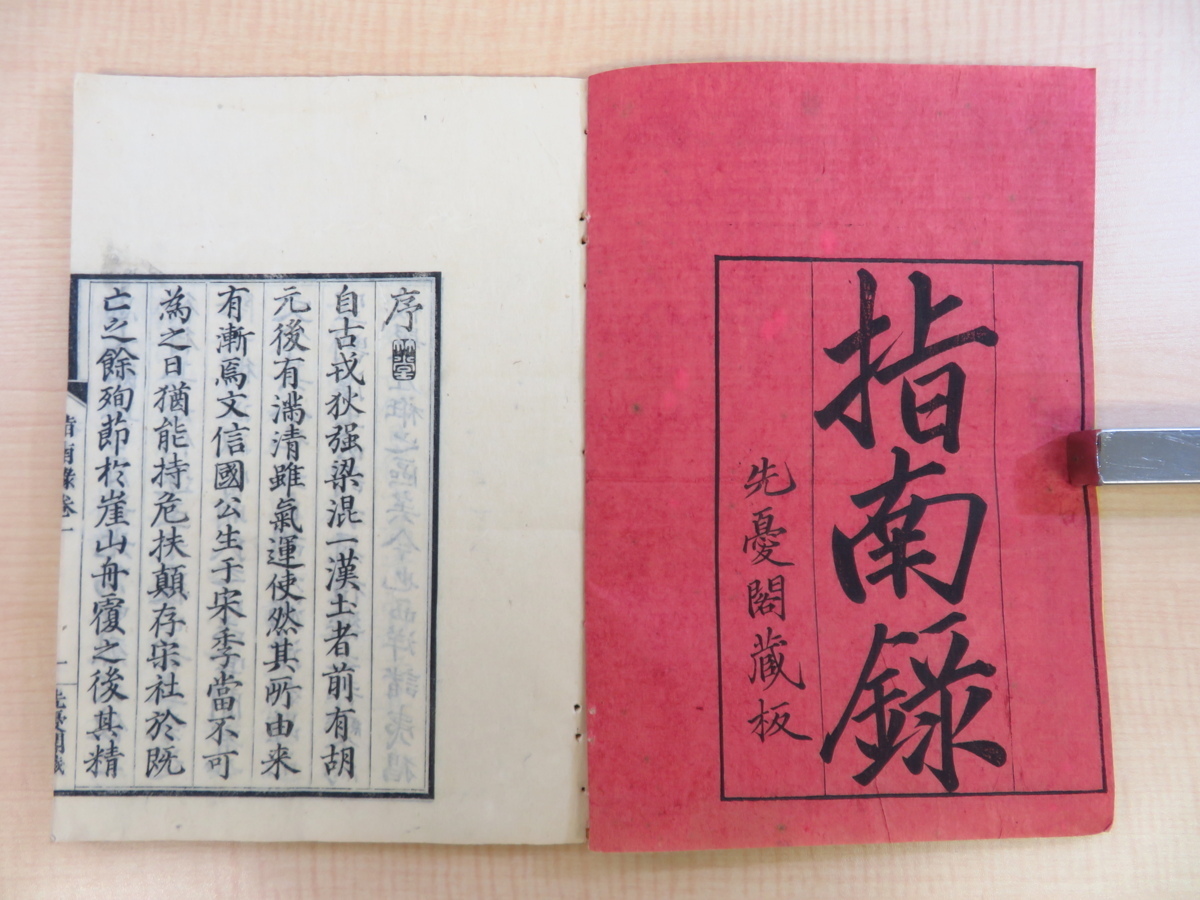 指南錄
先憂閣藏板
序
自古戎狄强梁混一漢土者前有胡
元後有満清雖氣運使然其所由来
有漸焉文信國公生于宋季當不可
為之日猶能持危扶顛存宋社於既
亡之餘殉節於崖山舟覆之後其精
指南錄卷一